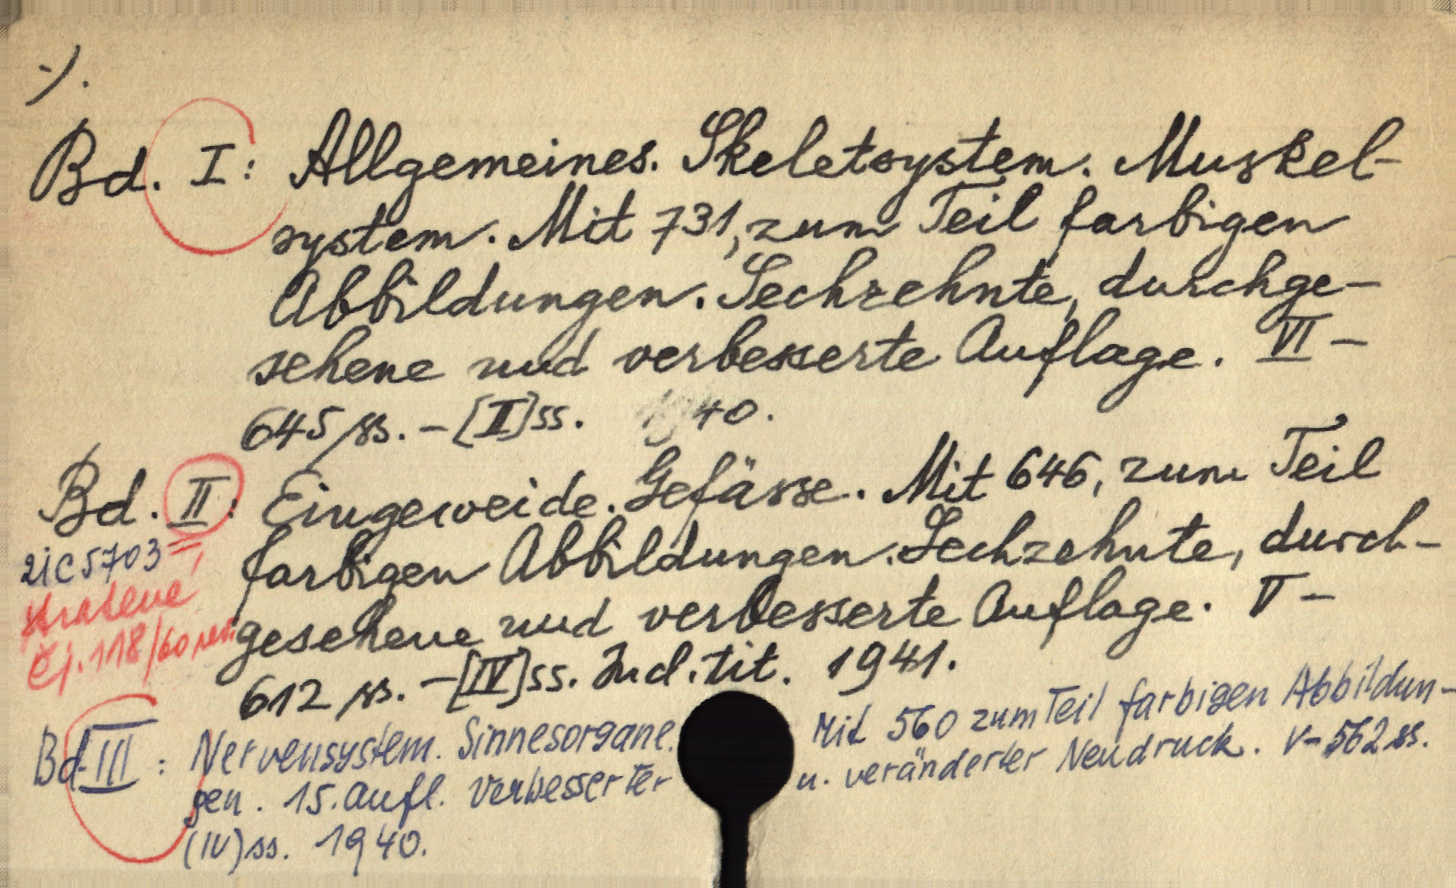 ·/.
Bd. I: Allgemeines. Skeletsystem. Muskel-
system. Mit 731, zum Teil farbigen
Abbildungen. Sechzehnte, durchge-
sehene und verbesserte Auflage. VI -
645 ss. - [II] ss. 1940.
Bd. II: Eingeweide. Gefässe. Mit 646, zum Teil
farbigen Abbildungen. Sechzehnte, durch-
gesehene und verbesserte Auflage. V -
612 ss. - [IV] ss. Ind. tit. 1941.
2iC5703
stratene
Čj. 118/60
Bd III: Nervensystem. Sinnesorgane. Mit 560 zum Teil farbigen Abbildun-
gen. 15. Aufl. Verbesserter u. veränderter Neudruck. V - 562 ss.
(IV) ss. 1940.